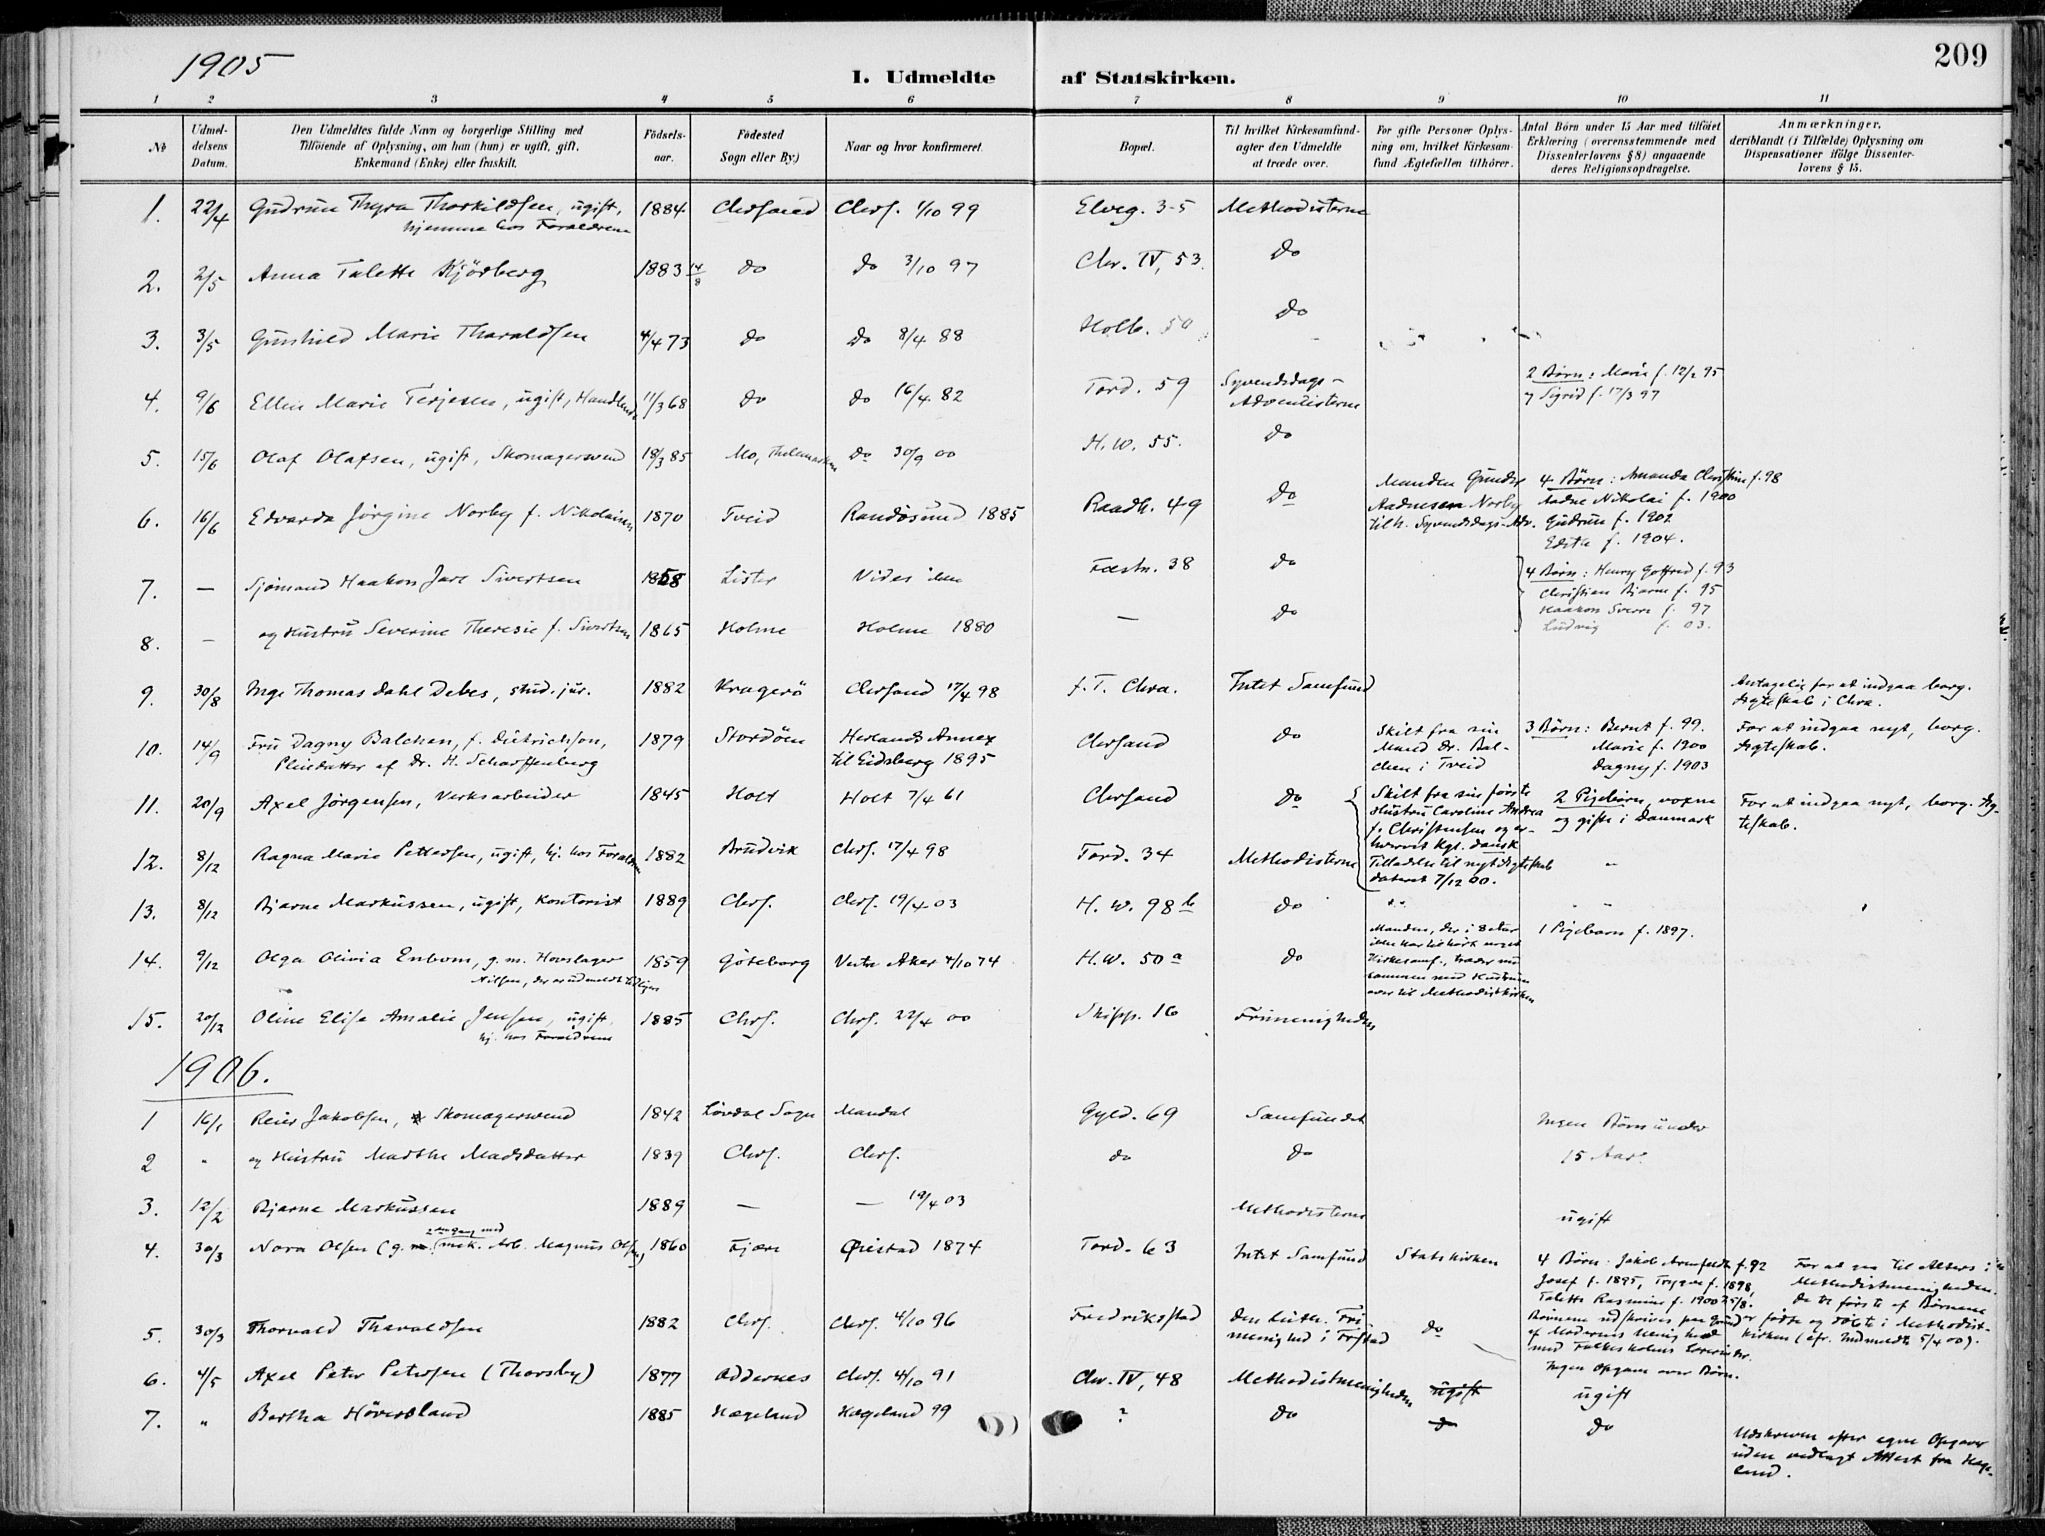 1905
I. Udmeldte af Statskirken.
209
1 2 3 4 5 6 7 8 9 10 11
№
Udmel-
delsens
Datum.
Den Udmeldtes fulde Navn og borgerlige Stilling med
Tilföiende af Oplysning, om han (hun) er ugift, gift,
Enkemand (Enke) eller fraskilt.
Födsels-
aar.
Födested
Sogn eller By.)
Naar og hvor konfirmeret.
Bopæl.
Til hvilket Kirkesamfund-
agter den Udmeldte
at træde over.
For gifte Personer Oplys-
ning om, hvilket Kirkesam-
fund Ægtefællen tilhörer.
Antal Börn under 15 Aar med tilföiet
Erklæring (overensstemmende med
Dissenterlovens § 8) angaaende
deres Religionsopdragelse.
Anmærkninger,
deriblandt (i Tilfælde) Oplysning om
Dispensationer ifölge Dissenter-
lovens § 15.
1. 22/4 Gudrun Thyra Thorkildsen, ugift, 1884 Chrsand Chrs. 1/10 99 Elveg. 35 Methodisterne
hjemme hos Forældrene
2. 2/5 Anna Talette Kjödberg 1883 14/8 do do 3/10 97 Chr. IV, 53. do
3. 3/5 Gunhild Marie Tharaldsen 4/4 73 do do 8/4 88 Holb. 50 do
4. 9/6 Ellen Marie Terjesen, ugift, Handlende 11/3 68 do do 16/4 82 Tord. 59 Syvendedags-
Adventisterne
2 Börn: Marie f. 12/2 95
og Sigrid f. 17/3 97
5. 15/6 Olaf Olafsen, ugift, Skomagersvend 18/3 85 Mo, Thelemarken do 30/9 00 H.W. 55. do
6. 16/6 Edvarda Jörgine Norby f. Nikolaisen 1870 Tveid Randösund 1885 Raadh. 49 do
Manden Gunder
Aadnesen Norby
tilh. Syvendedags-Adv.
4 Börn: Amanda Christine f. 98
Aadne Nikolai f. 1900
Gudrun f. 1902
Edith f. 1904.
7. — Sjömand Haakon Jarl Sivertsen 1858 Lister Vides ikke Fæstn. 38 do
4 Börn: Henry Gotfred f. 93
Christian Bjarne f. 95
Haakon Sverre f. 97
Ludvig f. 03.
8. — og Hustru Severine Theresie f. Sivertsen 1865 Holme Holme 1880 — do
9. 30/8 Inge Thomas Dahl Debes, stud. jur. 1882 Kragerö Chrsand 17/4 98 f. T. Chra. Intet Samfund
Antagelig for at indgaa borg.
Ægteskab i Chra.
10. 14/9 Fru Dagny Balchen, f. Didrichson, 1879 Stordöen Herlands Annex Chrsand do
Pleiedatter af Dr. H. Scharffenberg
til Eidsberg 1895
Skilt fra sin
Mand Dr. Bal-
chen i Tveid
3 Börn: Bernt f. 99.
Marie f. 1900
Dagny f. 1903
For at indgaa nyt, borg.
Ægteskab.
11. 20/9 Axel Jörgensen, Verksarbeider 1845 Holt Holt 7/4 61 Chrsand do
Skilt fra sin förste
Hustru Caroline Andrea
f. Christensen og er-
hvervet Kgl. dansk
Tilladelse til nyt Ægteskab
dateret 7/12 00.
2 Pigebörn, voxne
og gifte i Danmark
For at indgaa nyt, borg. Æg-
teskab.
12. 8/12 Ragna Marie Pettersen, ugift, hj. hos Forældrene 1882 Brudvik Chrs. 17/4 98 Tord. 34 Methodisterne "
13. 8/12 Bjarne Markussen, ugift, Kontorist 1889 Chrs. Chrs. 19/4 03 H.W. 98 b do
14. 9/12 Olga Olivia Enbom, g. m. Hovslager 1859 Göteborg Vestre Aker 4/10 74 H.W. 50 a do
Nilsen, der er udmeldt tidligere
Manden, der i 8 Aar
ikke har tilhört noget
Kirkesamf., træder nu
sammen med Hustruen
over til Methodistkirken
1 Pigebarn f. 1897.
15. 20/12 Oline Elise Amalie Jensen, ugift, 1885 Chrs. Chrs. 22/4 00 Skipp. 16 Frimenigheden
hj. hos Forældrene
1906.
1 16/1 Reier Jakobsen, Skomagersvend 1842 Lövdal Sogn Mandal Gyld. 69 Samfundet Ingen Börn under
2 " og Hustru Marthe Madsdatter 1839 Chrs. Chrs. do do 15 Aar.
3. 12/2 Bjarne Markussen 1889 — — 19/4 03 Methodisterne ugift
4. 30/3 Nora Olsen (g. m. mek. Arb. Magnus Olsen) 1860 Fjære Öiestad 1874 Tord. 63 Intet Samfund Statskirken
4 Börn: Jakob Arnfeldt f. 92
Josef f. 1895, Trygve f. 1898,
Talette Rasmine f. 1900 25/8.
Börnene udskrives paa Grund
af Moderens Uenighed
med Folkeskolens Lærere.
For at gaa til Alters i
Methodistmenigheden.
De tre förste af Börnene
er födte og döbte i Methodist-
kirken (cfr. Indmeldte 5/4 00).
5. 30/3 Thorvald Tharaldsen 1882 Chrs. Chrs. 4/10 96 Fredriksstad Den Luth. Fri-
menighed i Frstad
do
Ingen Opgave over Börn.
6. 4/5 Axel Peter Petersen (Thorsby) 1877 Oddernes Chrs. 4/10 91 Chr. IV, 48 Methodistmenigheden ugift ugift
7. " Bertha Höverland 1885 Hægeland Hægeland 99 ? do do do
Udskreven efter egne Opgaver
uden vedlagt Attest fra Hæge-
land.